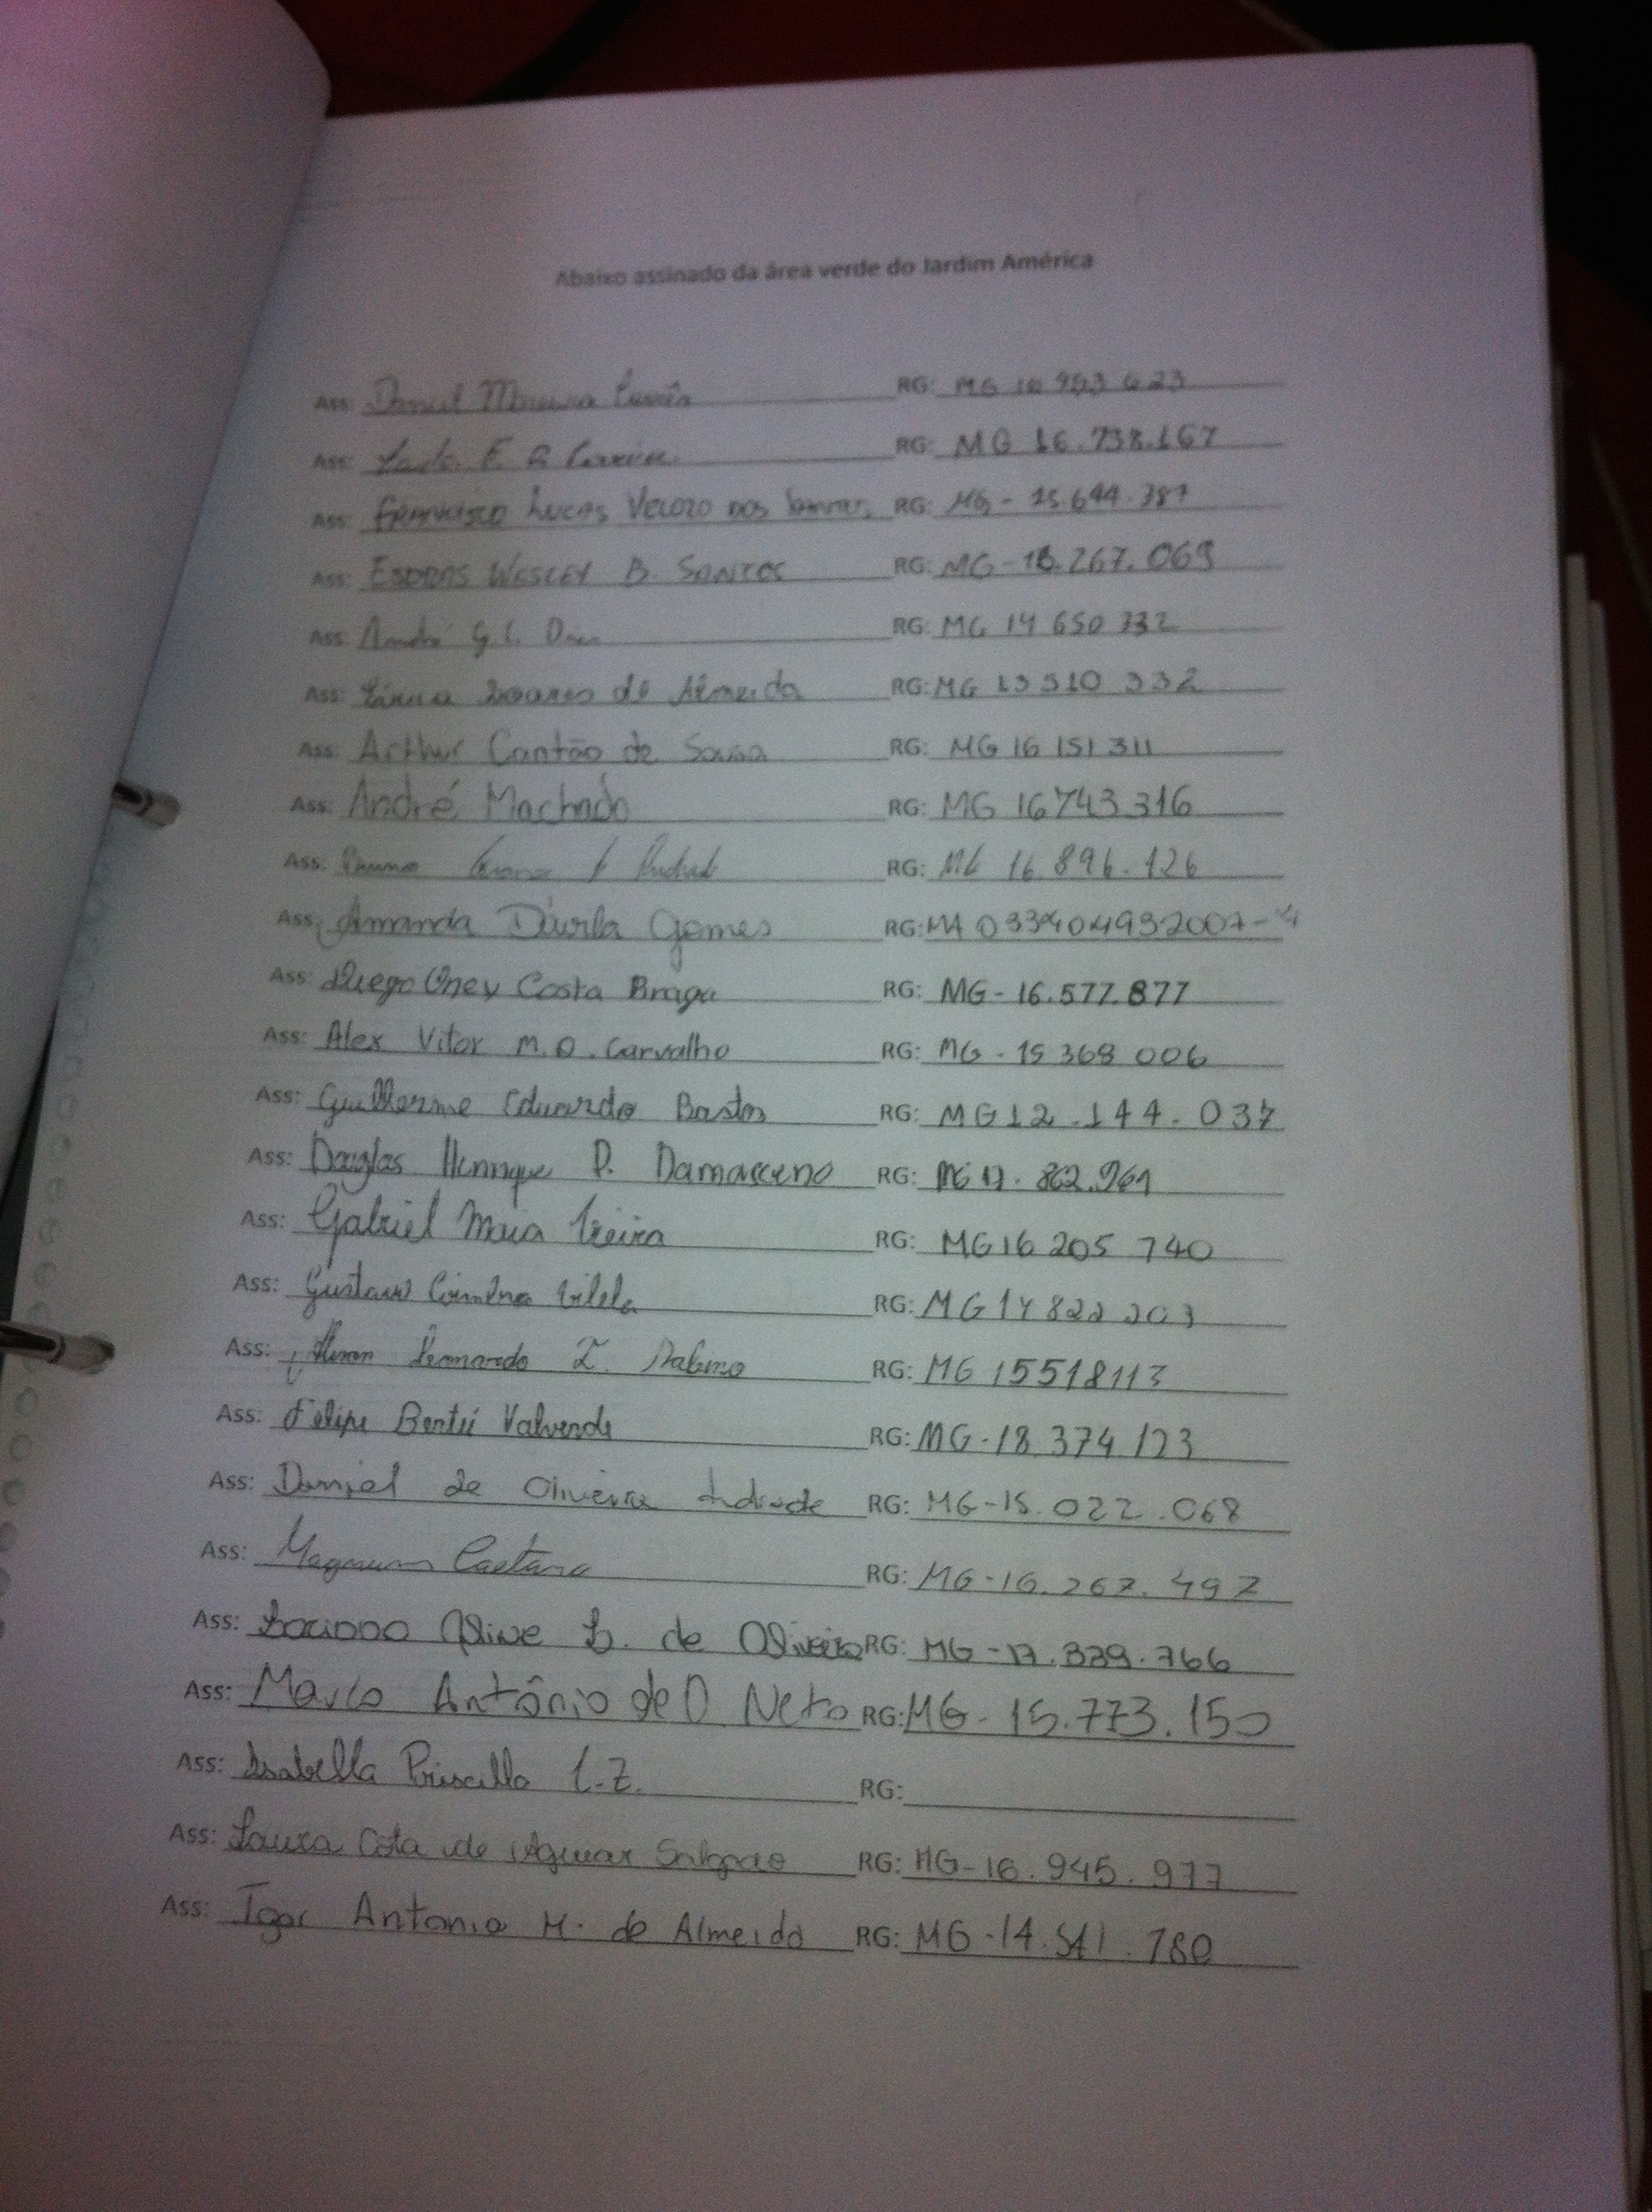 Abaixo assinado da área verde do Jardim América
Ass: Daniel RG: MG
Ass: E. RG: MG 16.738.167
Ass: Francisco Lucas Velozo dos Santos RG: MG - 15.644.387
Ass: Esdras Wesley B. Santos RG: MG - 18.267.069
Ass: André G. C. RG: MG 14 650 732
Ass: Soares de Almeida RG: MG 13 510 332
Ass: Arthur Cantão de Sousa RG: MG 16 151 311
Ass: André Machado RG: MG 16743316
Ass: Bruno RG: MG 16.896.126
Ass: Amanda Dávila Gomes RG: MA
Ass: Diego Oney Costa Braga RG: MG - 16.577.877
Ass: Alex Vitor M.O. Carvalho RG: MG - 15 368 006
Ass: Guilherme Eduardo Bastos RG: MG12.144.037
Ass: Douglas Henrique P. Damasceno RG: MG 17.862.961
Ass: Gabriel Maia Vieira RG: MG16 205 740
Ass: Gustavo Coimbra Vilela RG: MG14 822 203
Ass: Leonardo RG: MG 15518113
Ass: Felipe Valverde RG: MG-18 374 123
Ass: Daniel de Oliveira Andrade RG: MG-15.022.068
Ass: Magnum Caetano RG: MG-16.267.497
Ass: Aline L. de Oliveira RG: MG-17.339.766
Ass: Marco Antônio de O. Neto RG: MG- 15.773.150
Ass: Isabella Priscilla L.Z. RG:
Ass: Laura Cota de Aguiar Salgado RG: MG-16.945.977
Ass: Igor Antonio M. de Almeida RG: MG-14.541.780